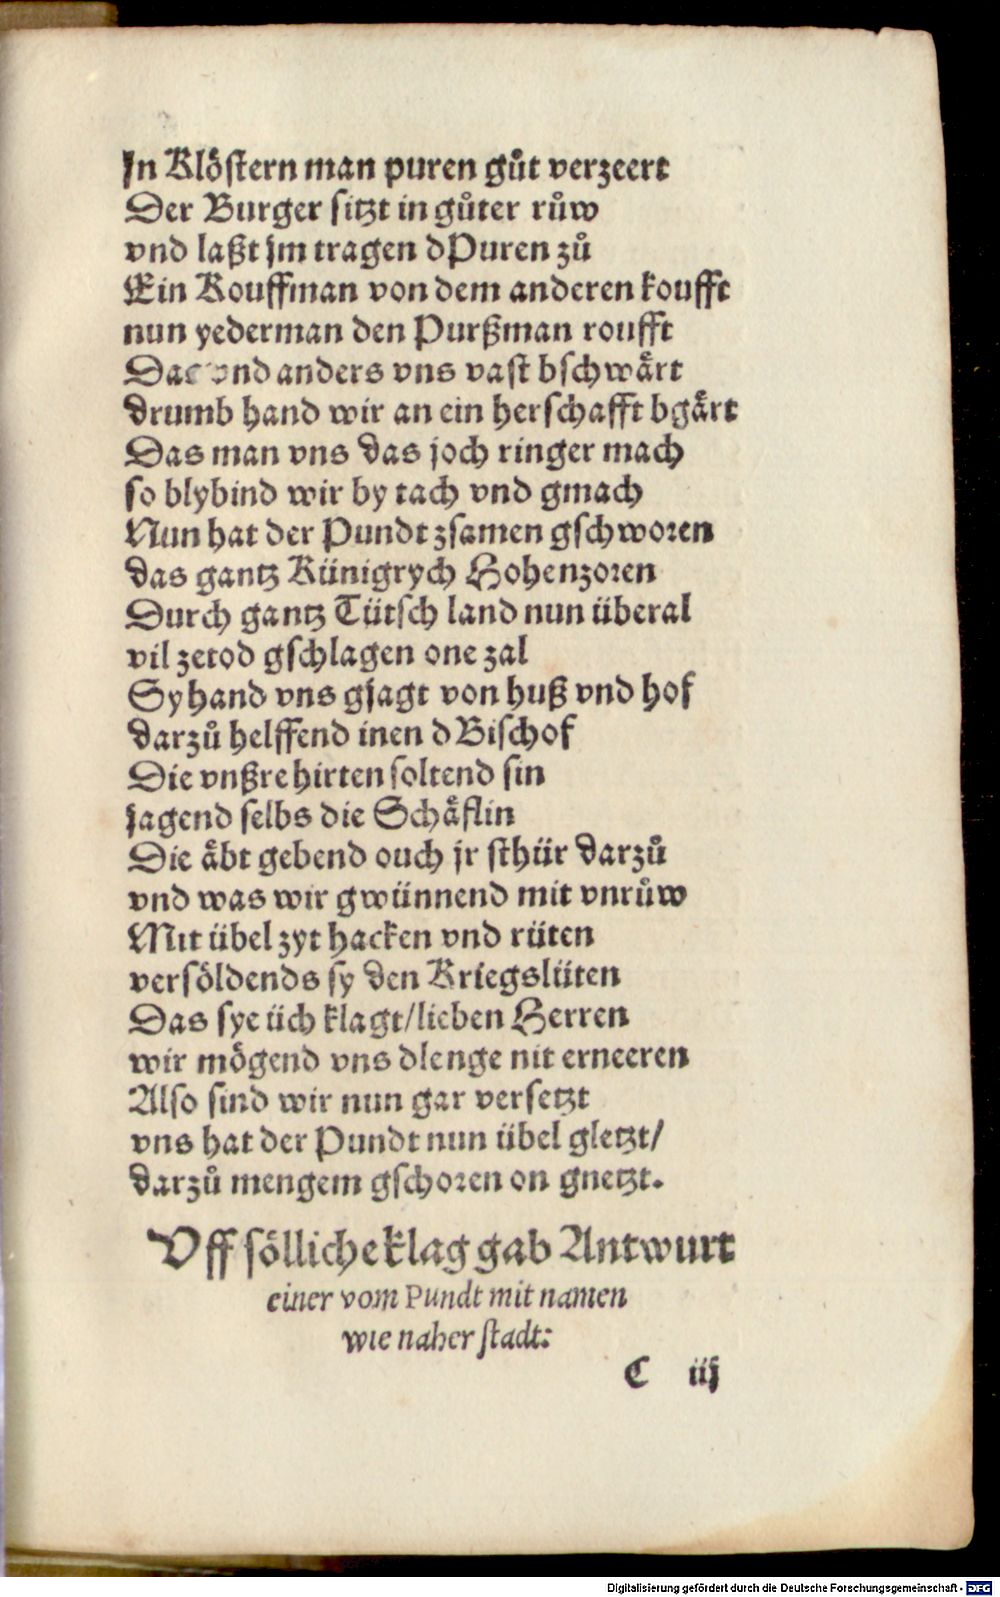 In Klöstern man puren gůt verzeert
Der Burger sitzt in gůter růw
vnd laßt jm tragen dPuren zů
Ein Kouffman von dem anderen koufft
nun yederman den Purßman roufft
Das vnd anders vns vast bschwaͤrt
drumb hand wir an ein herschafft bgaͤrt
Das man vns das joch ringer mach
so blybind wir by tach vnd gmach
Nun hat der Pundt zsamen gschworen
das gantz Künigrych Hohenzoren
Durch gantz Tütsch land nun überal
vil zetod gschlagen one zal
Sy hand vns gjagt von huß vnd hof
darzů helffend inen dBischof
Die vnßre hirten soltend sin
jagend selbs die Schaͤflin
Die aͤbt gebend ouch jr sthür darzů
vnd was wir gwünnend mit vnrůw
Mit übel zyt hacken vnd rüten
versöldends sy den Kriegslüten
Das sye üch klagt/lieben Herren
wir mögend vns dlenge nit erneeren
Also sind wir nun gar versetzt
vns hat der Pundt nun übel gletzt/
darzů mengem gschoren on gnetzt.
Vff söllliche klag gab Antwurt
einer vom Pundt mit namen
wie naher stadt:
C iij
Digitalisierung gefördert durch die Deutsche Forschungsgemeinschaft - DFG